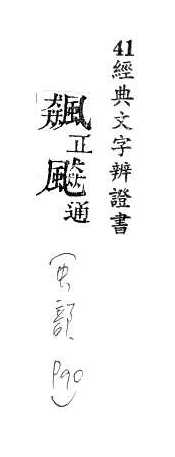 41經典文字辨證書
飆正飈通
(虫部 P90)